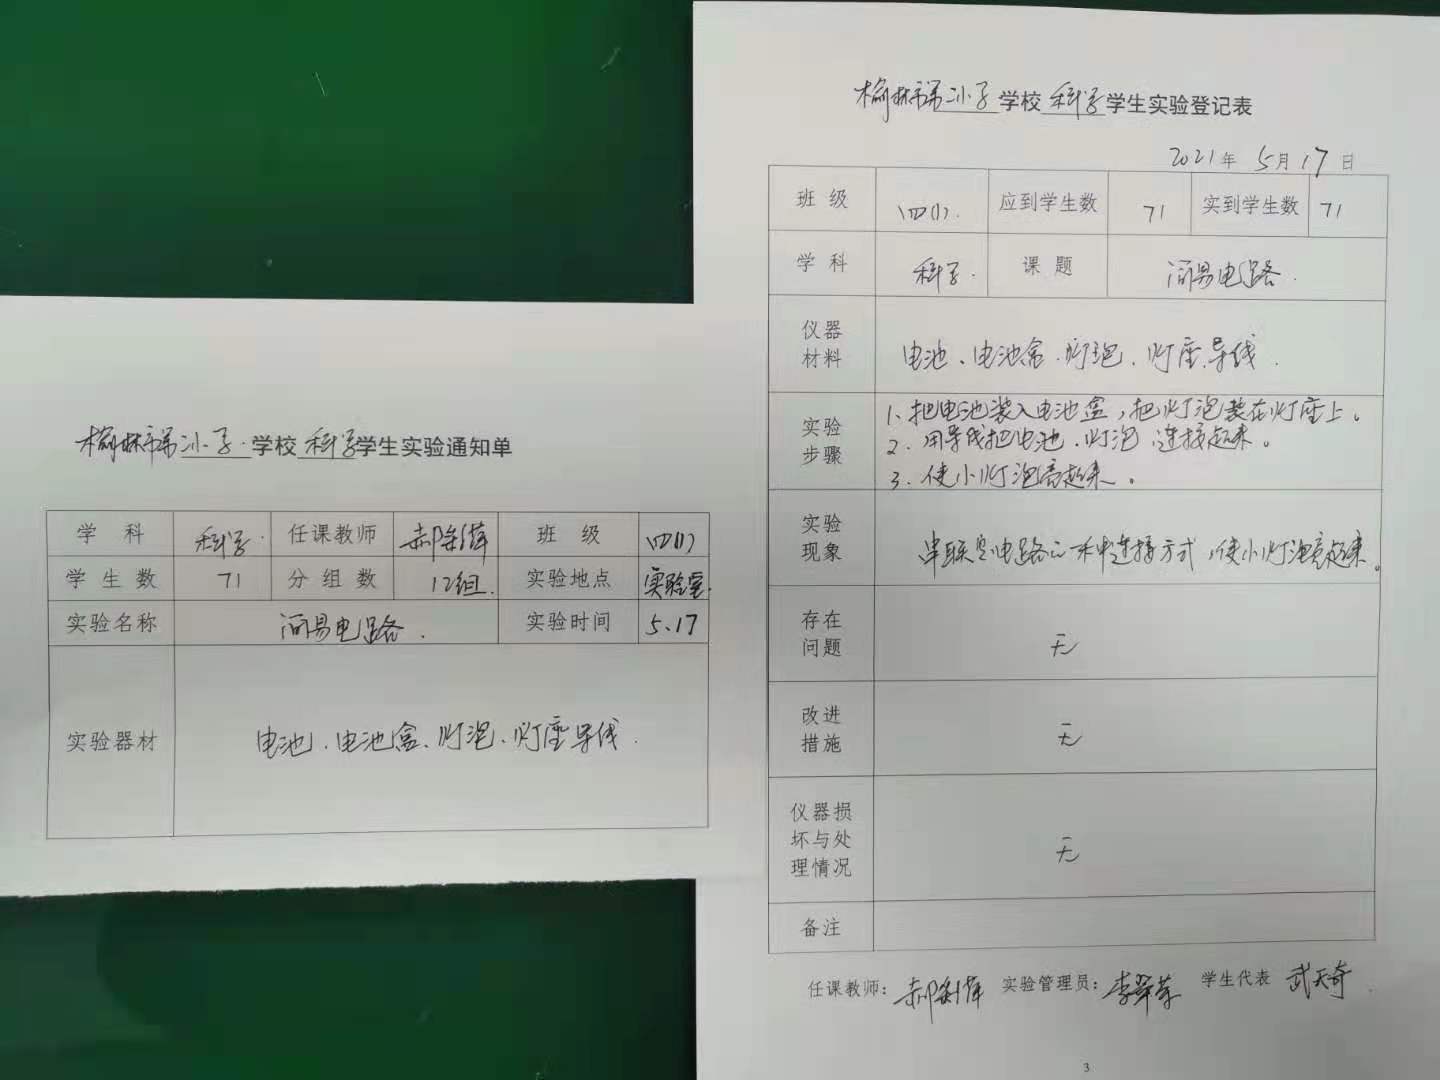 榆林市第二小学学校科学学生实验通知单
学科 科学 任课教师 班级 四(1)
学生数 71 分组数 12组 实验地点 实验室
实验名称 简易电路 实验时间 5.17
实验器材 电池、电池盒、灯泡、灯座导线
榆林市第二小学学校科学学生实验登记表
2021年5月17日
班级 四(1) 应到学生数 71 实到学生数 71
学科 科学 课题 简易电路
仪器
材料
电池、电池盒、灯泡、灯座、导线
实验
步骤
1、把电池装入电池盒,把灯泡装在灯座上。
2、用导线把电池、灯泡连接起来。
3、使小灯泡亮起来。
实验
现象
串联是电路的一种连接方式,使小灯泡亮起来。
存在
问题
无
改进
措施
无
仪器损
坏与处
理情况
无
备注
任课教师: 实验管理员: 学生代表 武天奇
3